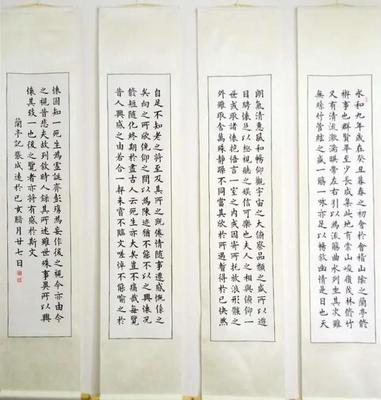 永和九年歲在癸丑暮春之初會於會稽山陰之蘭亭脩
禊事也群賢畢至少長咸集此地有崇山峻嶺茂林脩竹
又有清流激湍暎帶左右引以為流觴曲水列坐其次雖
無絲竹管絃之盛一觴一詠亦足以暢敘幽情是日也天
朗氣清惠風和暢仰觀宇宙之大俯察品類之盛所以遊
目騁懷足以極視聽之娛信可樂也夫人之相與俯仰一
世或取諸懷抱悟言一室之內或因寄所托放浪形骸之
外雖取舍萬殊靜躁不同當其欣於所遇暫得於己快然
自足不知老之將至及其所之既倦情隨事遷感慨係之
矣向之所欣俛仰之間以為陳迹猶不能不以之興懷況
脩短隨化終期於盡古人云死生亦大矣豈不痛哉每覽
昔人興感之由若合一契未嘗不臨文嗟悼不能喻之於
懷固知一死生為虛誕齊彭殤為妄作後之視今亦由今
之視昔悲夫故列敘時人錄其所述雖世殊事異所以興
懷其致一也後之覽者亦將有感於斯文
蘭亭記張成達於己亥臘月廿七日